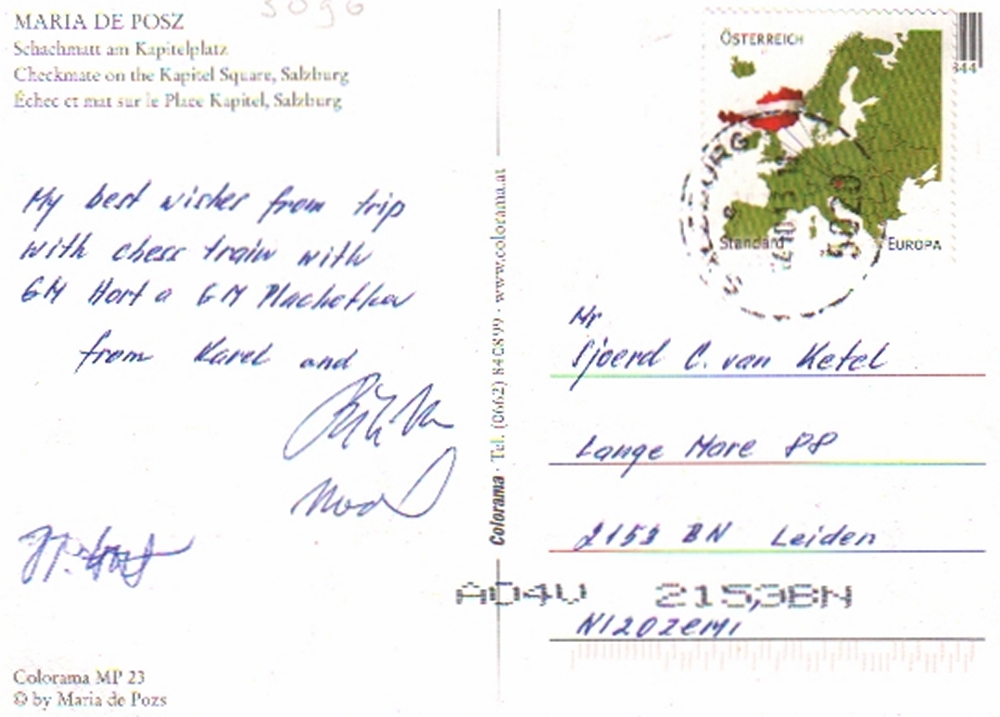 MARIA DE POSZ
Schachmatt am Kapitelplatz
Checkmate on the Kapitel Square, Salzburg
Échec et mat sur le Place Kapitel, Salzburg
My best wishes from trip
with chess train with
GM Hort a GM Plachetka
from Karel and
Colorama MP 23
© by Maria de Pozs
Colorama · Tel. (0662) 840899 · www.colorama.at
ÖSTERREICH
Standard
EUROPA
SALZBURG
844
Mr
Sjoerd C. van Ketel
Lange Mare 88
2153 BN Leiden
AD4U 2153BN
NIZOZEMI